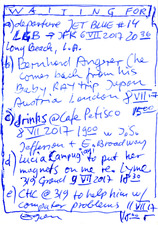 WAITING FOR
a) departure JET BLUE #14
LGB → JFK 6 VII 2017 2036
Long Beach, L.A.
b) Bernhard Angerer (he
comes back from his
Baby Ray trip Japan
Austria London 8 VII 17
c) drinks @ Cafe Petisco 1500
8 VII 2017 1900 w J.S.
Jefferson + E. Broadway
d) Lucia Campig to put her
magnets on me re. Lyme
319 Grand 9 VII 2017 1630
e) CHC @ 319 to help him w/
computer problems 11 VII 17